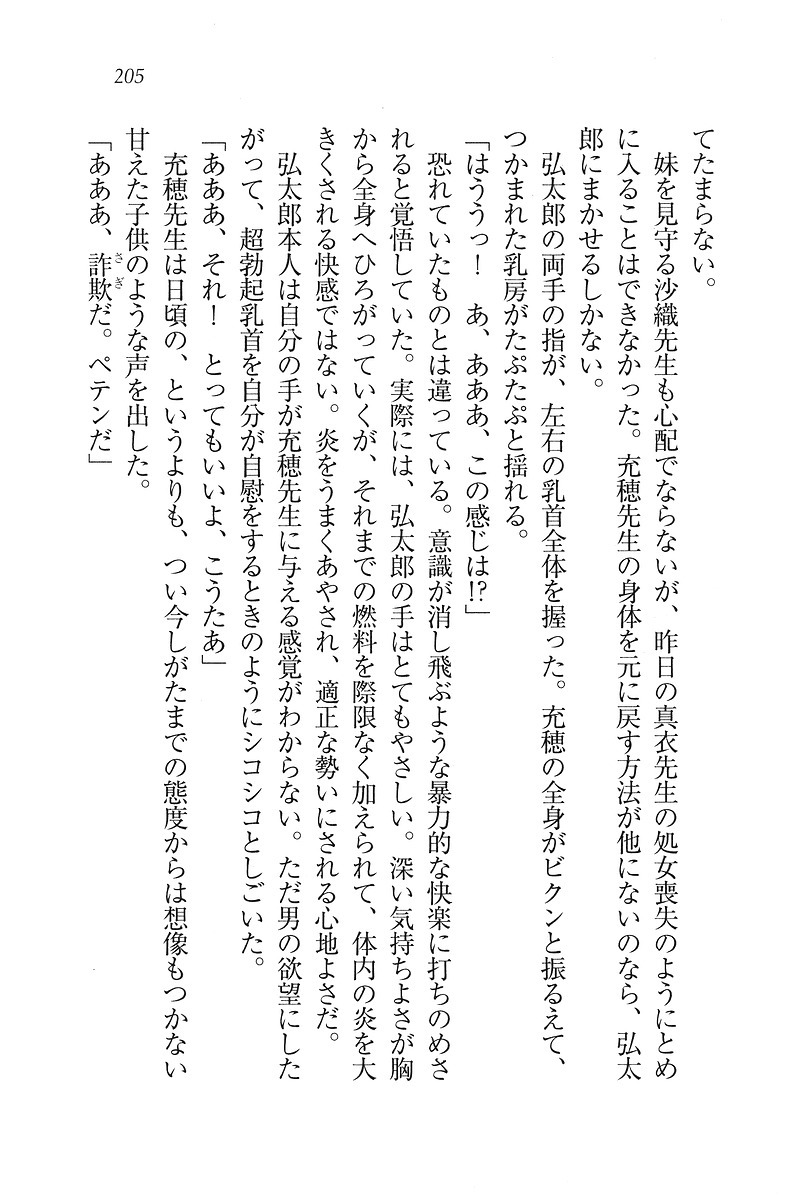 205
てたまらない。
　妹を見守る沙織先生も心配でならないが、昨日の真衣先生の処女喪失のようにとめ
に入ることはできなかった。充穂先生の身体を元に戻す方法が他にないのなら、弘太
郎にまかせるしかない。
　弘太郎の両手の指が、左右の乳首全体を握った。充穂の全身がビクンと振るえて、
つかまれた乳房がたぷたぷと揺れる。
「はううっ！　あ、あああ、この感じは!?」
　恐れていたものとは違っている。意識が消し飛ぶような暴力的な快楽に打ちのめさ
れると覚悟していた。実際には、弘太郎の手はとてもやさしい。深い気持ちよさが胸
から全身へひろがっていくが、それまでの燃料を際限なく加えられて、体内の炎を大
きくされる快感ではない。炎をうまくあやされ、適正な勢いにされる心地よさだ。
　弘太郎本人は自分の手が充穂先生に与える感覚がわからない。ただ男の欲望にした
がって、超勃起乳首を自分が自慰をするときのようにシコシコとしごいた。
「あああ、それ！　とってもいいよ、こうたあ」
　充穂先生は日頃の、というよりも、つい今しがたまでの態度からは想像もつかない
甘えた子供のような声を出した。
「あああ、詐欺だ。ペテンだ」